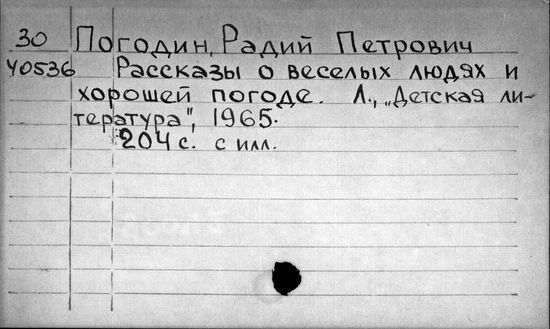 30 Погодин, Радий Петрович
40536 Рассказы о веселых людях и
хорошей погоде. Л., „Детская ли-
тература", 1965.
204 с. с илл.